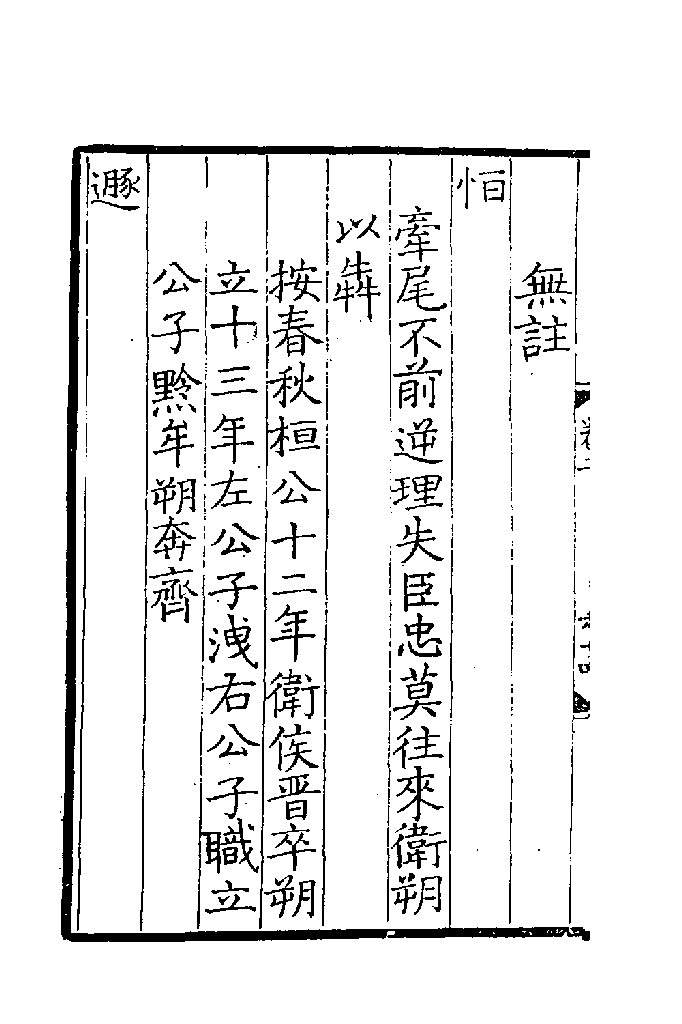 無註
恒
牽尾不前逆理失臣忠莫往來衛朔
以犇
按春秋桓公十二年衛侯晋卒朔
立十三年左公子洩右公子職立
公子黔牟朔奔齊
遯